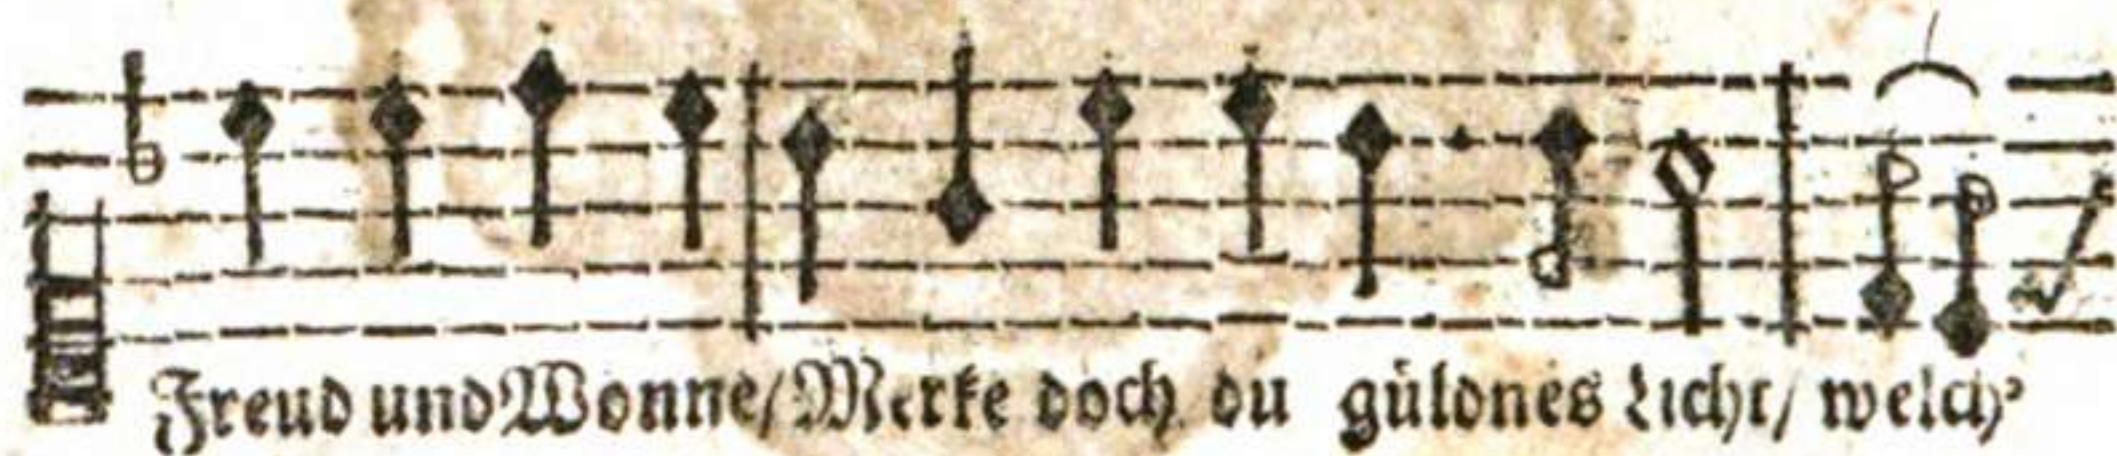 Freud und Wonne/ Merke doch du güldnes Licht/ welch'